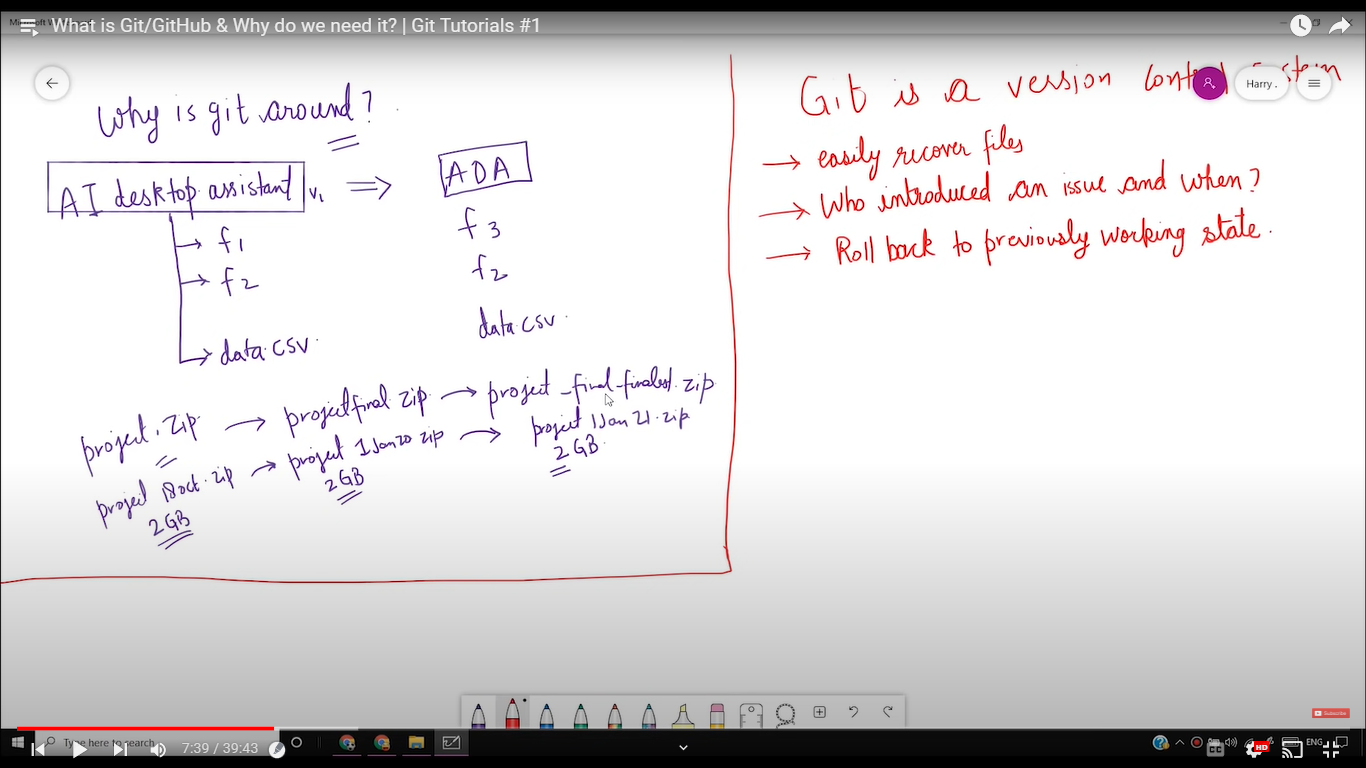 What is Git/GitHub & Why do we need it? | Git Tutorials #1
Why is git around?
AI desktop assistant v1 ⇒ ADA
→ f1
→ f2
→ data.csv
f3
f2
data.csv
project.zip → projectfinal.zip → project_final_finalest.zip
project 18oct.zip → project 1Jan20 zip → project 1Jan 21.zip
2GB
2GB
2GB
Git is a version control system
Harry .
→ easily recover files
→ Who introduced an issue and when?
→ Roll back to previously working state.
Subscribe
Type here to search
7:39 / 39:43
HD
ENG